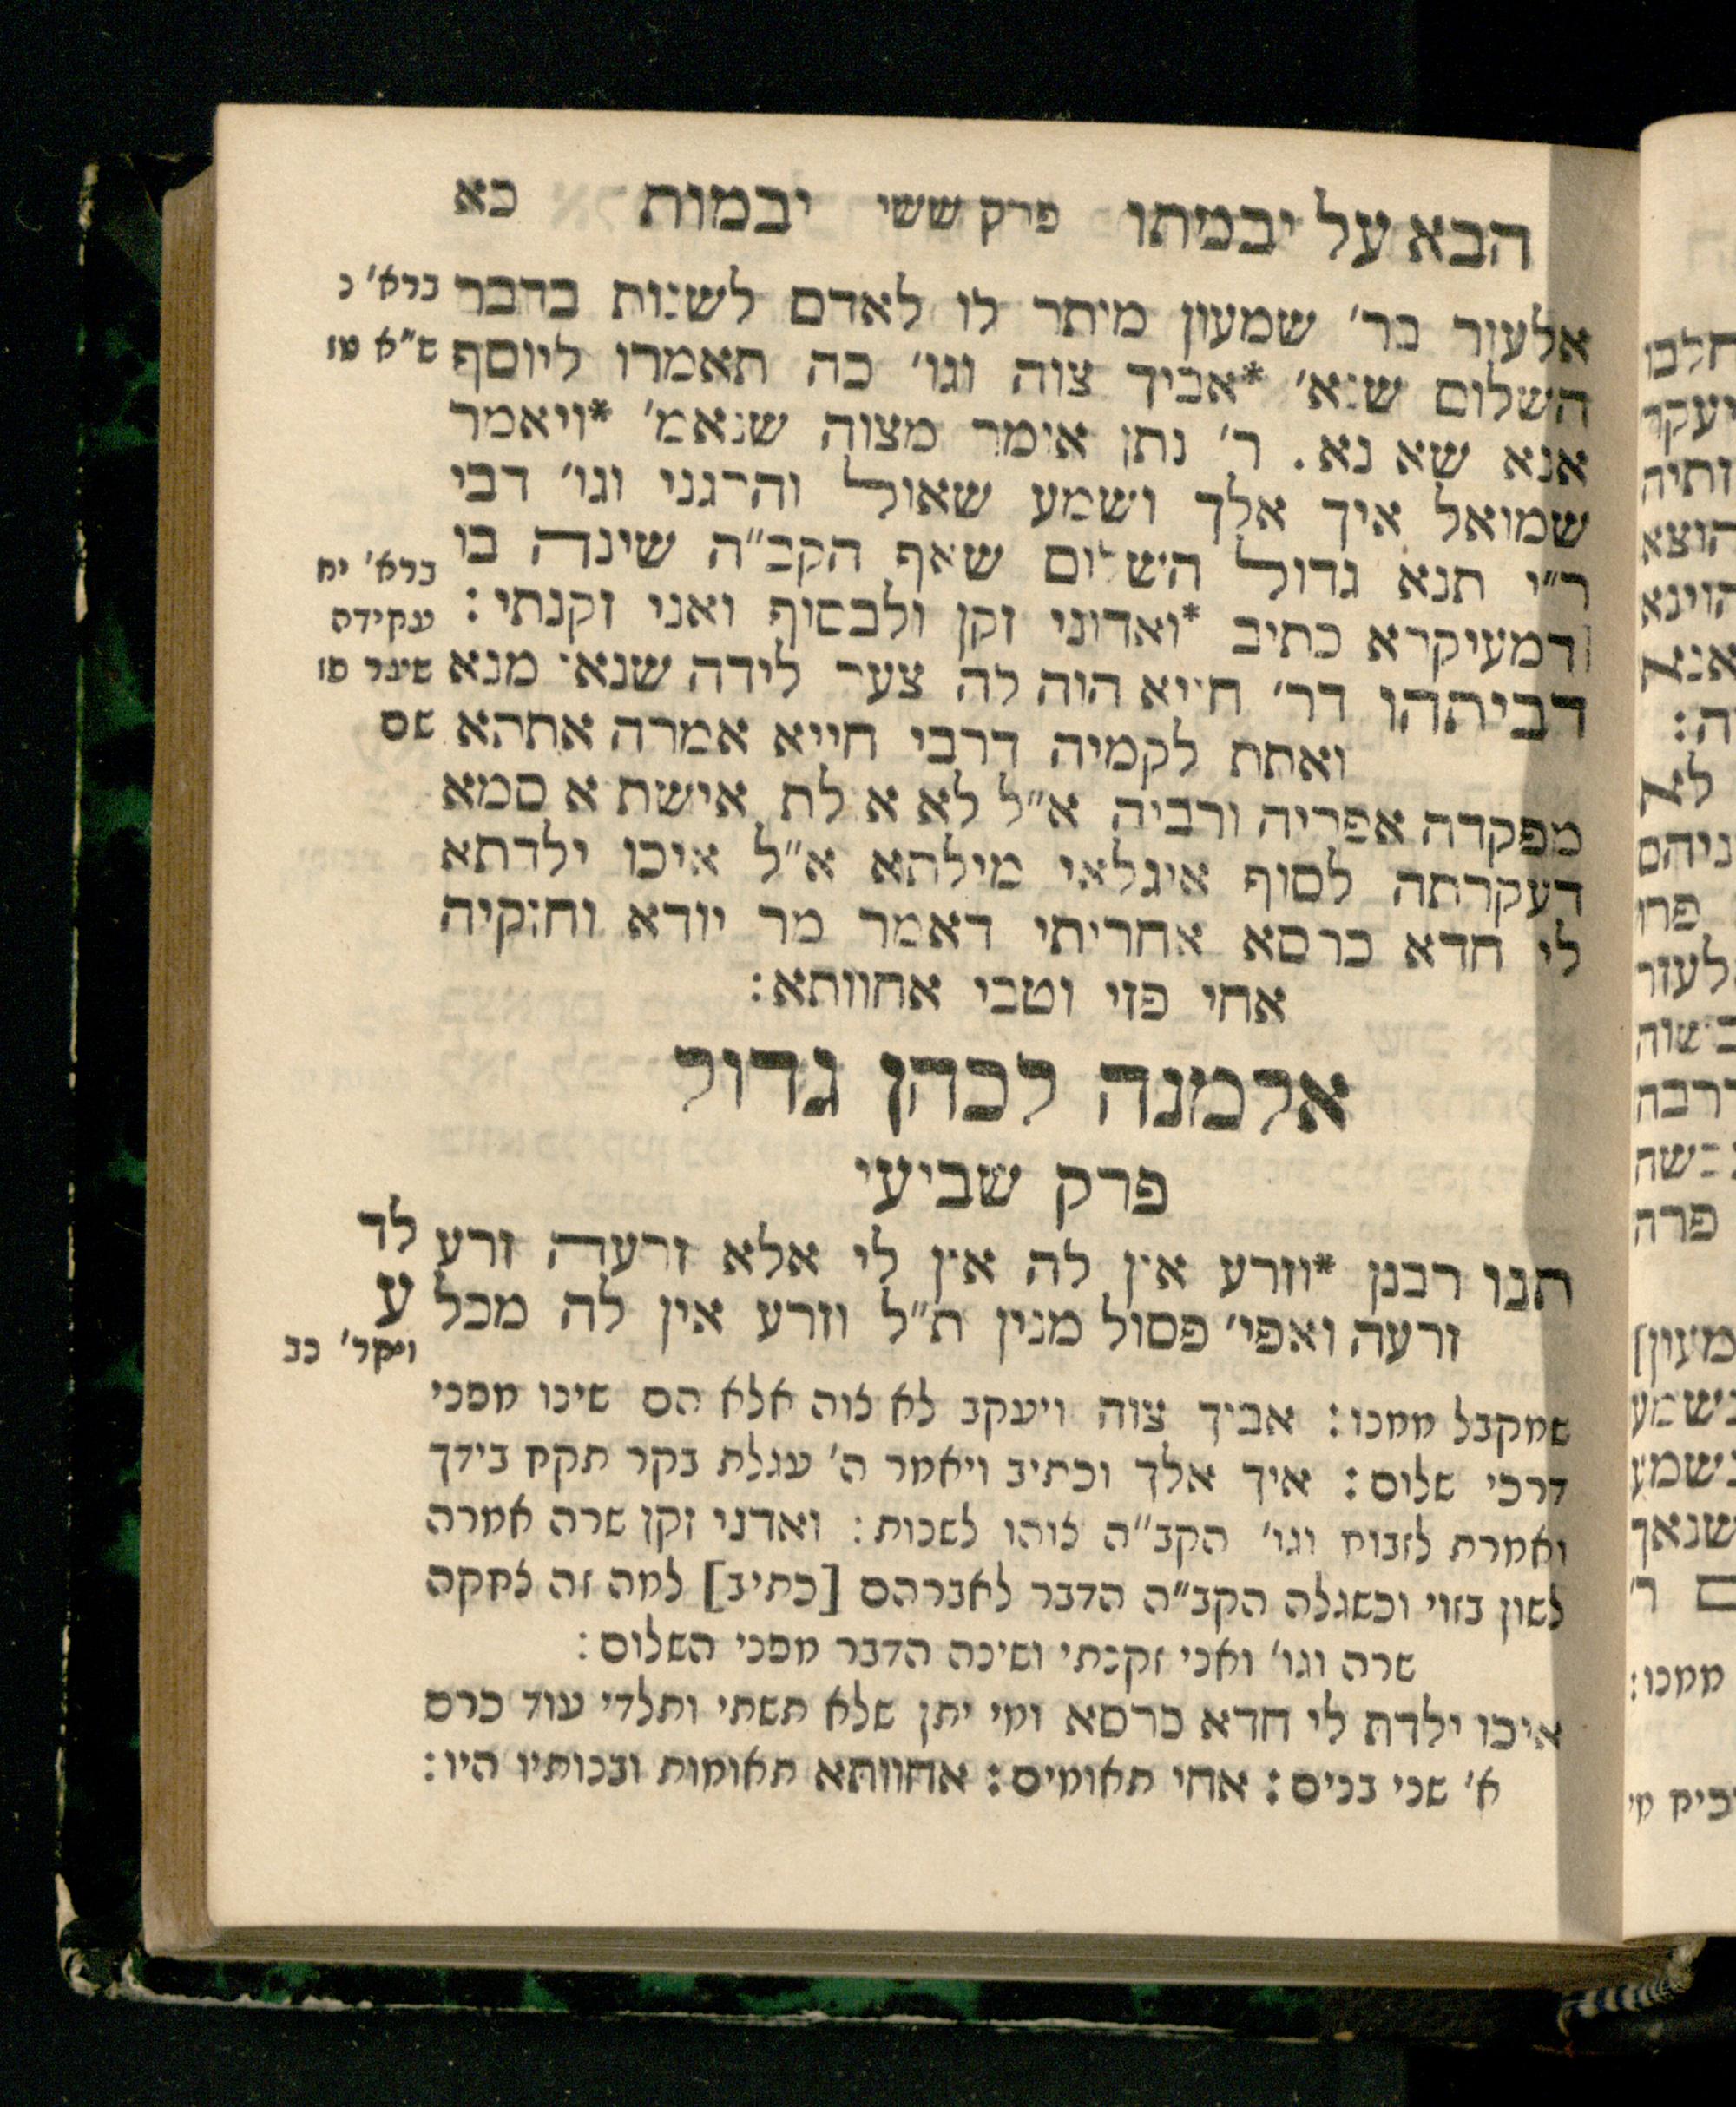 הבא על יבמתו פרק ששי יבמות כא
אלעזר בר׳ שמעון מיתר לו לאדם לשנות בדבר
ברא׳ נ
השלום שנא׳ *אביך צוה וגו׳ כה תאמרו ליוסף
ש״א טז
אנא שא נא. ר׳ נתן אומר מצוה שנאמ׳ *ויאמר
שמואל איך אלך ושמע שאול והרגני וגו׳ דבי
ר״י תנא גדול השלום שאף הקב״ה שינה בו
ברא׳ יח
דמעיקרא כתיב *ואדוני זקן ולבסוף ואני זקנתי:
עקידה
דביתהו דר׳ חייא הוה לה צער לידה שנאי מנא
שער טו
ואתת לקמיה דרבי חייא אמרה אתתא
שם
מפקדה אפריה ורביה א״ל לא אזלת אישתיא סמא
דעקרתה לסוף איגלאי מילתא א״ל איכו ילדתא
לי חדא כרסא אחריתי דאמר מר יודא וחזקיה
אחי פזי וטבי אחוותא:
אלמנה לכהן גדול
פרק שביעי
תנו רבנן *וזרע אין לה אין לי אלא זרעה זרע
לד
זרעה ואפי׳ פסול מנין ת״ל וזרע אין לה מכל
ע
ויקר׳ כב
שמקבל ממנו: אביך צוה ויעקב לא צוה אלא הם שינו מפני
דרכי שלום: איך אלך וכתיב ויאמר ה׳ עגלת בקר תקח בידך
ואמרת לזבוח וגו׳ הקב״ה צוהו לשנות: ואדני זקן שרה אמרה
לשון בזוי וכשגלה הקב״ה הדבר לאברהם [כתיב] למה זה צחקה
שרה וגו׳ ואני זקנתי ושינה הדבר מפני השלום:
איכו ילדת לי חדא כרסא ומי יתן שלא תשתי ותלדי עוד כרס
א׳ שני בנים: אחי תאומים: אחוותא תאומות ובנותיו היו: